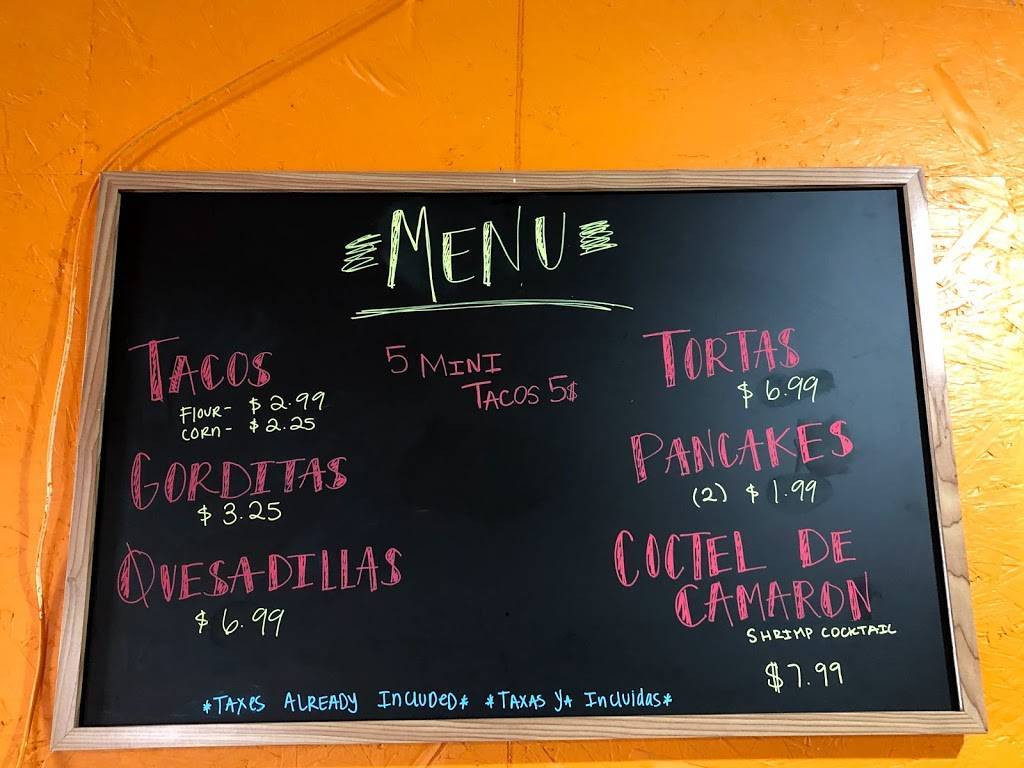 MENU
TACOS
FlOUR- $ 2.99
CORN- $ 2.25
GORDITAS
$ 3.25
QUESADILLAS
$ 6.99
5 MINI
TACOS 5$
TORTAS
$ 6.99
PANCAKES
(2) $ 1.99
COCTEL DE
CAMARON
SHRIMP COCKTAIL
$7.99
*TAXES ALREADY INCLUDED* *TAXAS YA INCLUIDAS*